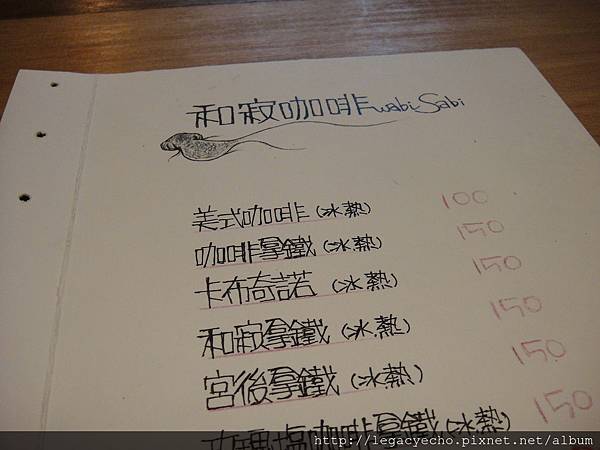 和寂咖啡wabi Sabi
美式咖啡(冰熱) 100
咖啡拿鐵(冰熱) 150
卡布奇諾(冰熱) 150
和寂拿鐵(冰熱) 150
宮後拿鐵(冰熱) 150
玫瑰塩咖啡拿鐵(冰熱) 150
http://legacyecho.pixnet.net/album